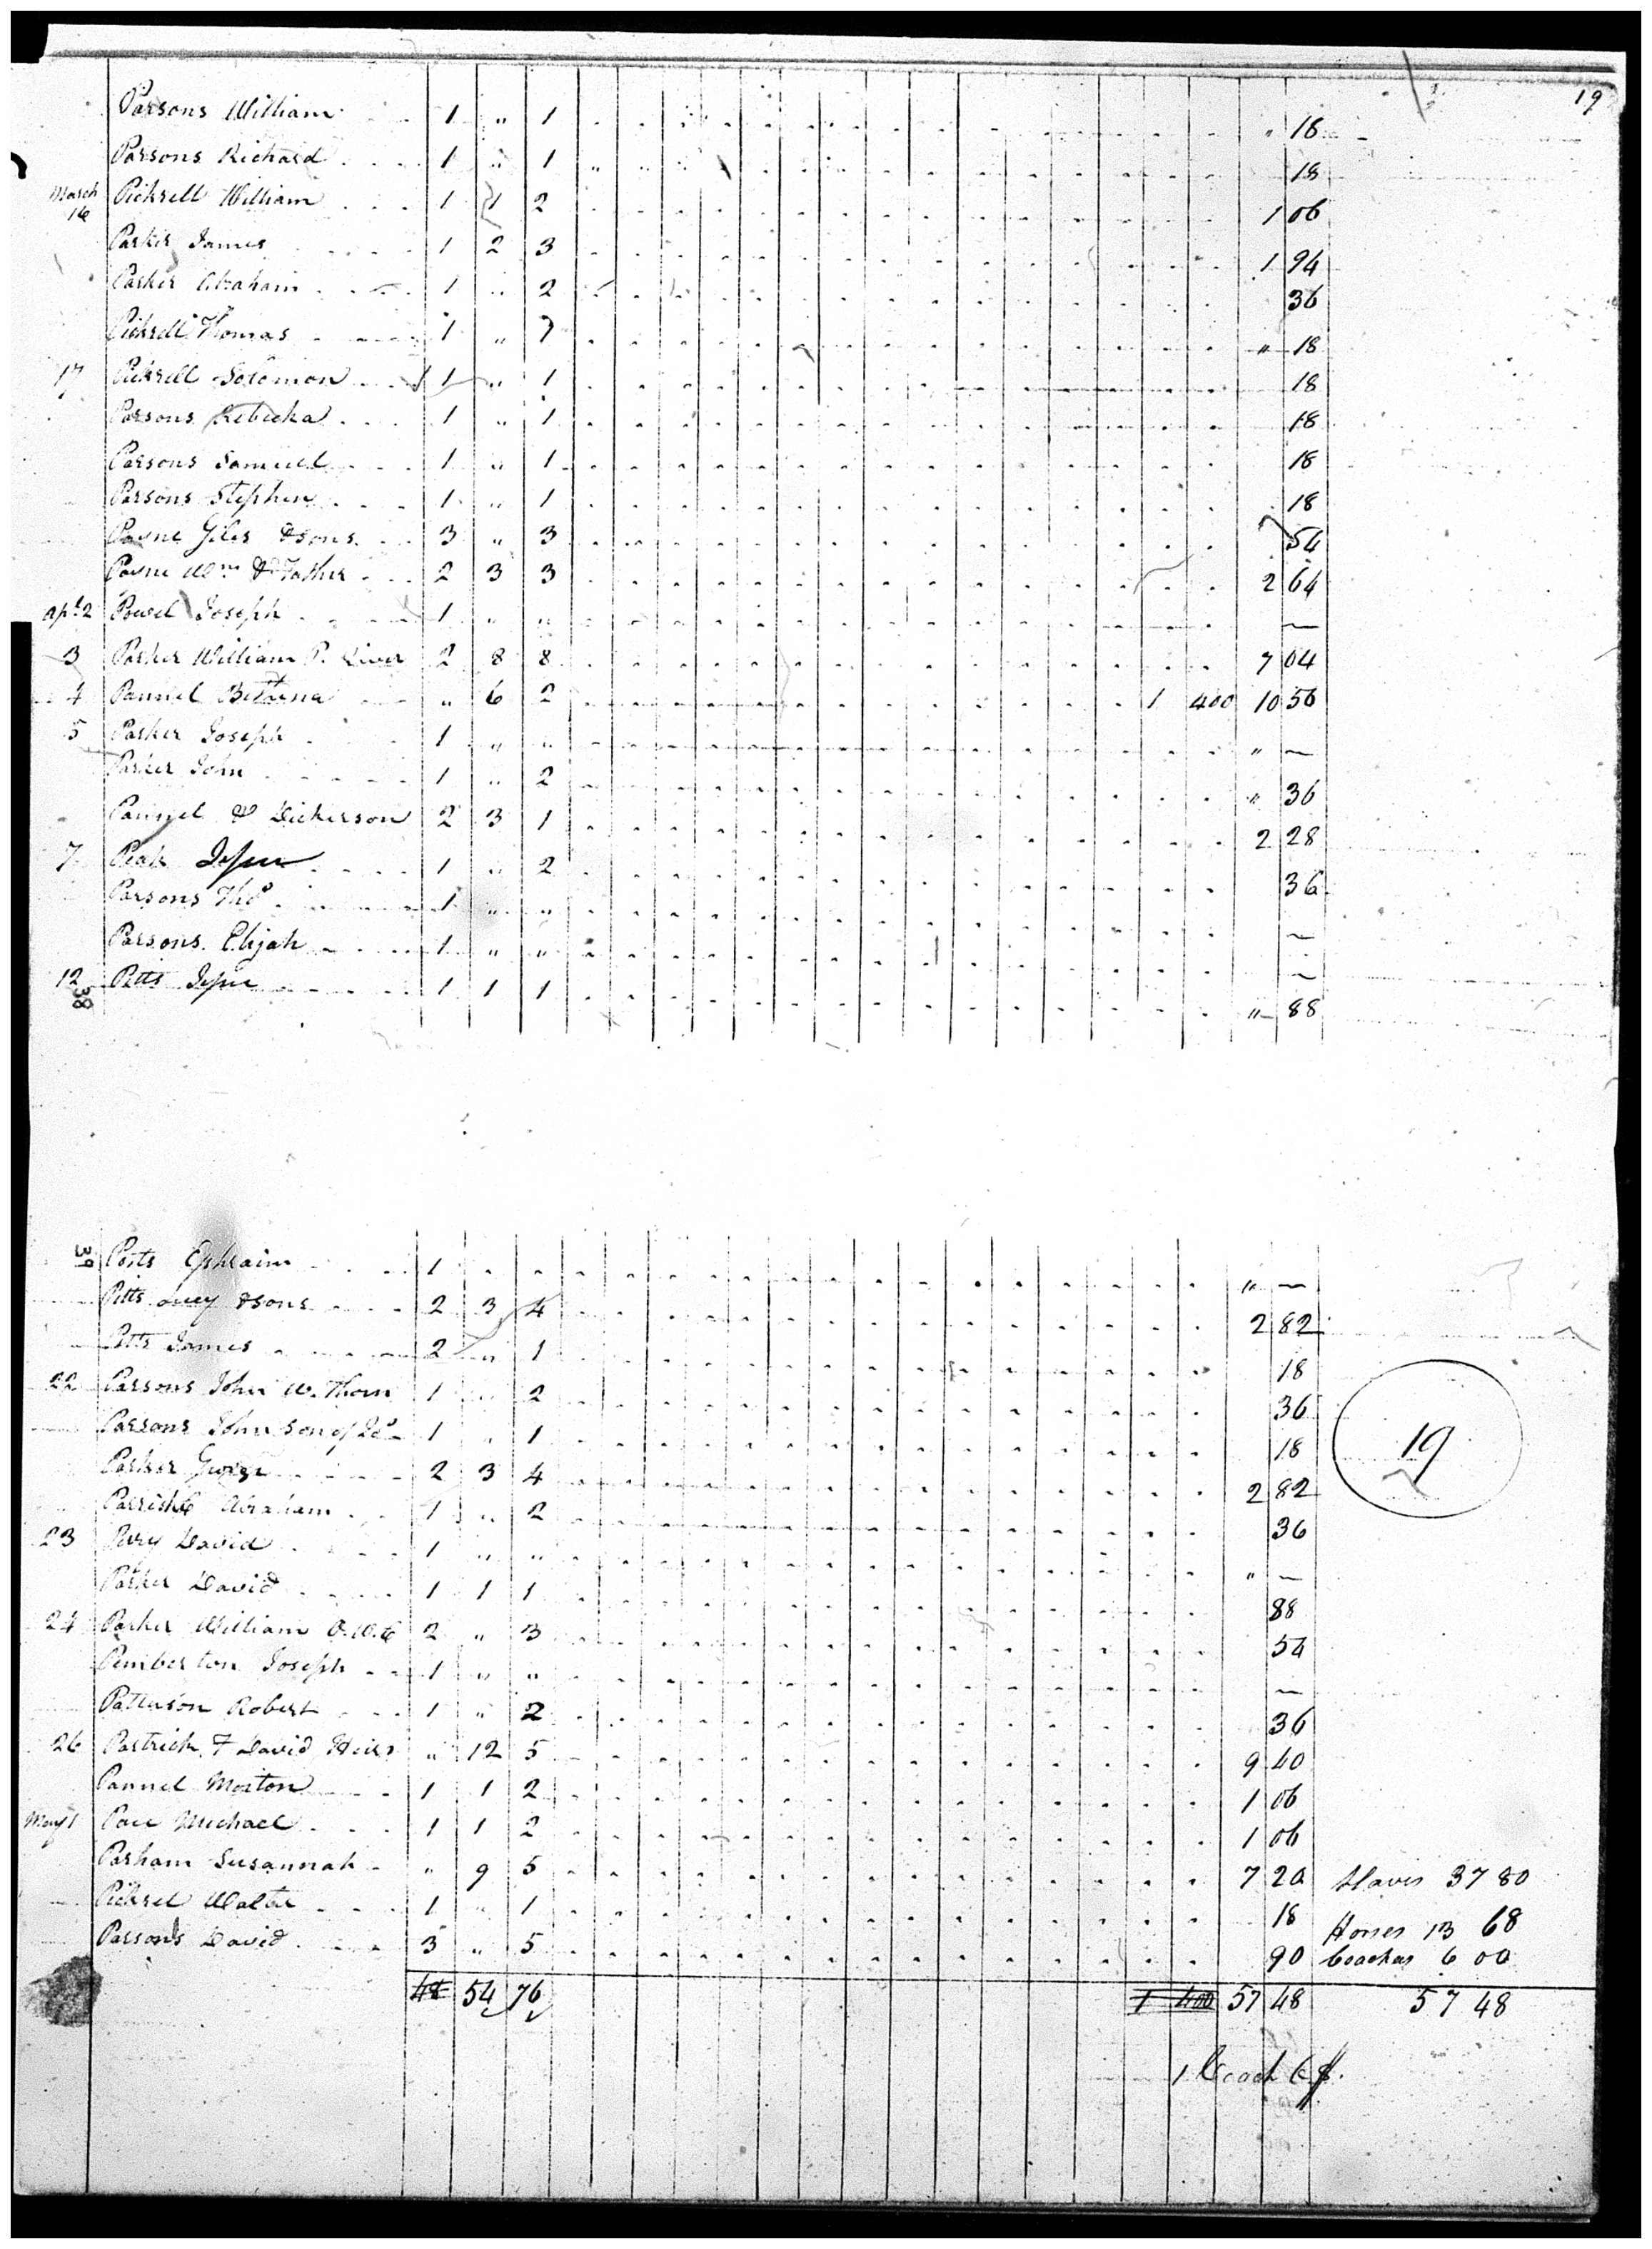 19
Parsons William 1 " 1 " 18
Parsons Richard 1 " 1 18
March 16 Pickrell William 1 1 2 1 06
Parker James 1 2 3 1 94
Parker Abraham 1 " 2 36
Pickrell Thomas 1 " 1 " 18
17 Pickrell Solomon 1 " 1 18
Parsons Rebecka 1 " 1 18
Parsons Samuel 1 " 1 18
Parsons Stephen 1 " 1 18
Payne Giles & sons 3 " 3 54
Payne Wm & Father 2 3 3 2 64
Apl 2 Powel Joseph 1 " " —
3 Parker William P. River 2 8 8 7 04
4 Pannel " 6 2 1 400 10 56
5 Parker Joseph 1 " " " —
Parker John 1 " 2 " 36
Pannel & Dickerson 2 3 1 2 28
7 Peak Jesse 1 " 2 36
Parsons Thos 1 " " —
Parsons Elijah 1 " " —
12 Pitts Jesse 1 1 1 " 88
38
39 Ephraim 1 " —
Pitts Lucy & sons 2 3 4 2 82
Pitts James 2 " 1 18
22 Parsons John W. Thorn 1 " 2 36
Parsons John son of Jo 1 " 1 18
Parker George 2 3 4 2 82
Abraham 1 " 2 36
23 David 1 " " " —
Parker David 1 1 1 88
24 Parker William 2 " 3 54
Pemberton Joseph 1 " " —
Patterson Robert 1 " 2 36
26 David Heirs " 12 5 9 40
Pannel Morton 1 1 2 1 06
May 1 Pace Michael 1 1 2 1 06
Parham Susannah " 9 5 7 20 Slaves 37 80
Pickrel Walter 1 " 1 18 Horses 13 68
Parsons David 3 " 5 90 Coaches 6 00
48 54 76 1 400 57 48 57 48
1 Coach 6$.
19